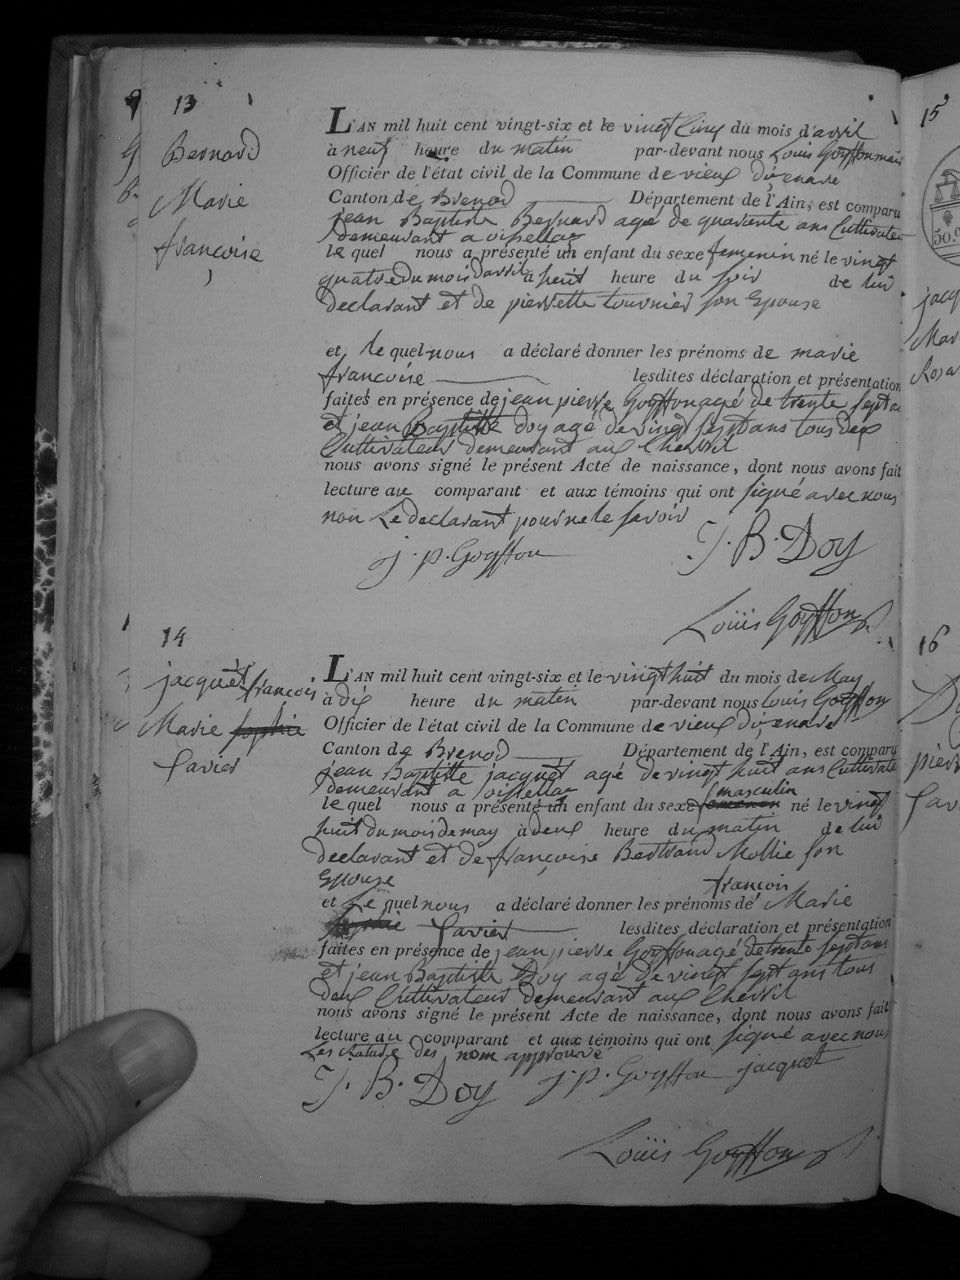 13
Bernard
Marie
françoise
L'AN mil huit cent vingt-six et le vingt Cinq du mois d'avril
à neuf heure du matin par-devant nous Louis Goyffon mair
Officier de l'état civil de la Commune de vieux d'izenave
Canton de Brenod Département de l'Ain, est comparu
jean Baptiste Bernard agé de quarante ans Cultivateur
demeurant a oisellaz
le quel nous a présenté un enfant du sexe femenin né le vingt
quatre du mois d'avril à huit heure du soir de lui
declarant et de pierrette tournier son Epouse
et le quel nous a déclaré donner les prénoms de marie
françoise lesdites déclaration et présentation
faites en présence de jean pierre Goyffon agé de trente sept ans
et jean Baptiste Doy agé de vingt sept ans tous deux
Cultivateurs demeurant aux Chevril
nous avons signé le présent Acte de naissance, dont nous avons fait
lecture au comparant et aux témoins qui ont signé avec nous
non Le declarant pour ne le savoir
j. p. Goyffon
J. B. Doy
Loüis Goyffon
14
jacquet françois
Marie sophie
Xavier
L'AN mil huit cent vingt-six et le vingt huit du mois de May
à dix heure du matin par-devant nous Louis Goyffon
Officier de l'état civil de la Commune de vieux d'izenave
Canton de Brenod Département de l'Ain, est comparu
jean Baptiste jacquet agé de vingt huit ans Cultivate
demeurant a oisellaz
masculin
le quel nous a présenté un enfant du sexe femenin né le vingt
huit du mois de may à deux heure du matin de lui
declarant et de françoise Bertrand Mollie son
Epouse
françois
et Le quel nous a déclaré donner les prénoms de Marie
sophie Xavier lesdites déclaration et présentation
faites en présence de jean pierre Goyffon agé de trente sept ans
et jean Baptiste Doy agé de vingt sept ans tous
deux Cultivateurs demeurant aux Chevril
nous avons signé le présent Acte de naissance, dont nous avons fait
lecture au comparant et aux témoins qui ont signé avec nous
Les rature des nom approuvé
J. B. Doy j. p. Goyffon jacquet
Loüis Goyffon
15
50.c
jacq
Mar
Rosa
16
pierr